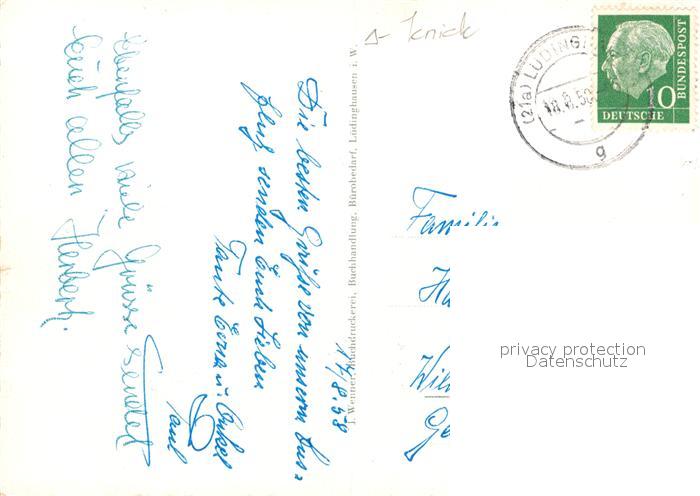 Δ- Knick
(21a) LÜDINGH
18.8.58
g
10
DEUTSCHE
BUNDESPOST
17/8.58
Die besten Grüße von unserm Aus=
flug senden Euch Lieben
Tante Erna u. Onkel
Paul
Ebenfalls viele Grüsse sendet
Euch allen Herbert.
J. Wenner, Buchdruckerei, Buchhandlung, Bürobedarf, Lüdinghausen i. W.
Familie
Ha
Wil
Ge
privacy protection
Datenschutz